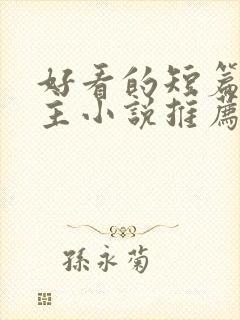 好看的短篇
主小説推薦
孫永菊